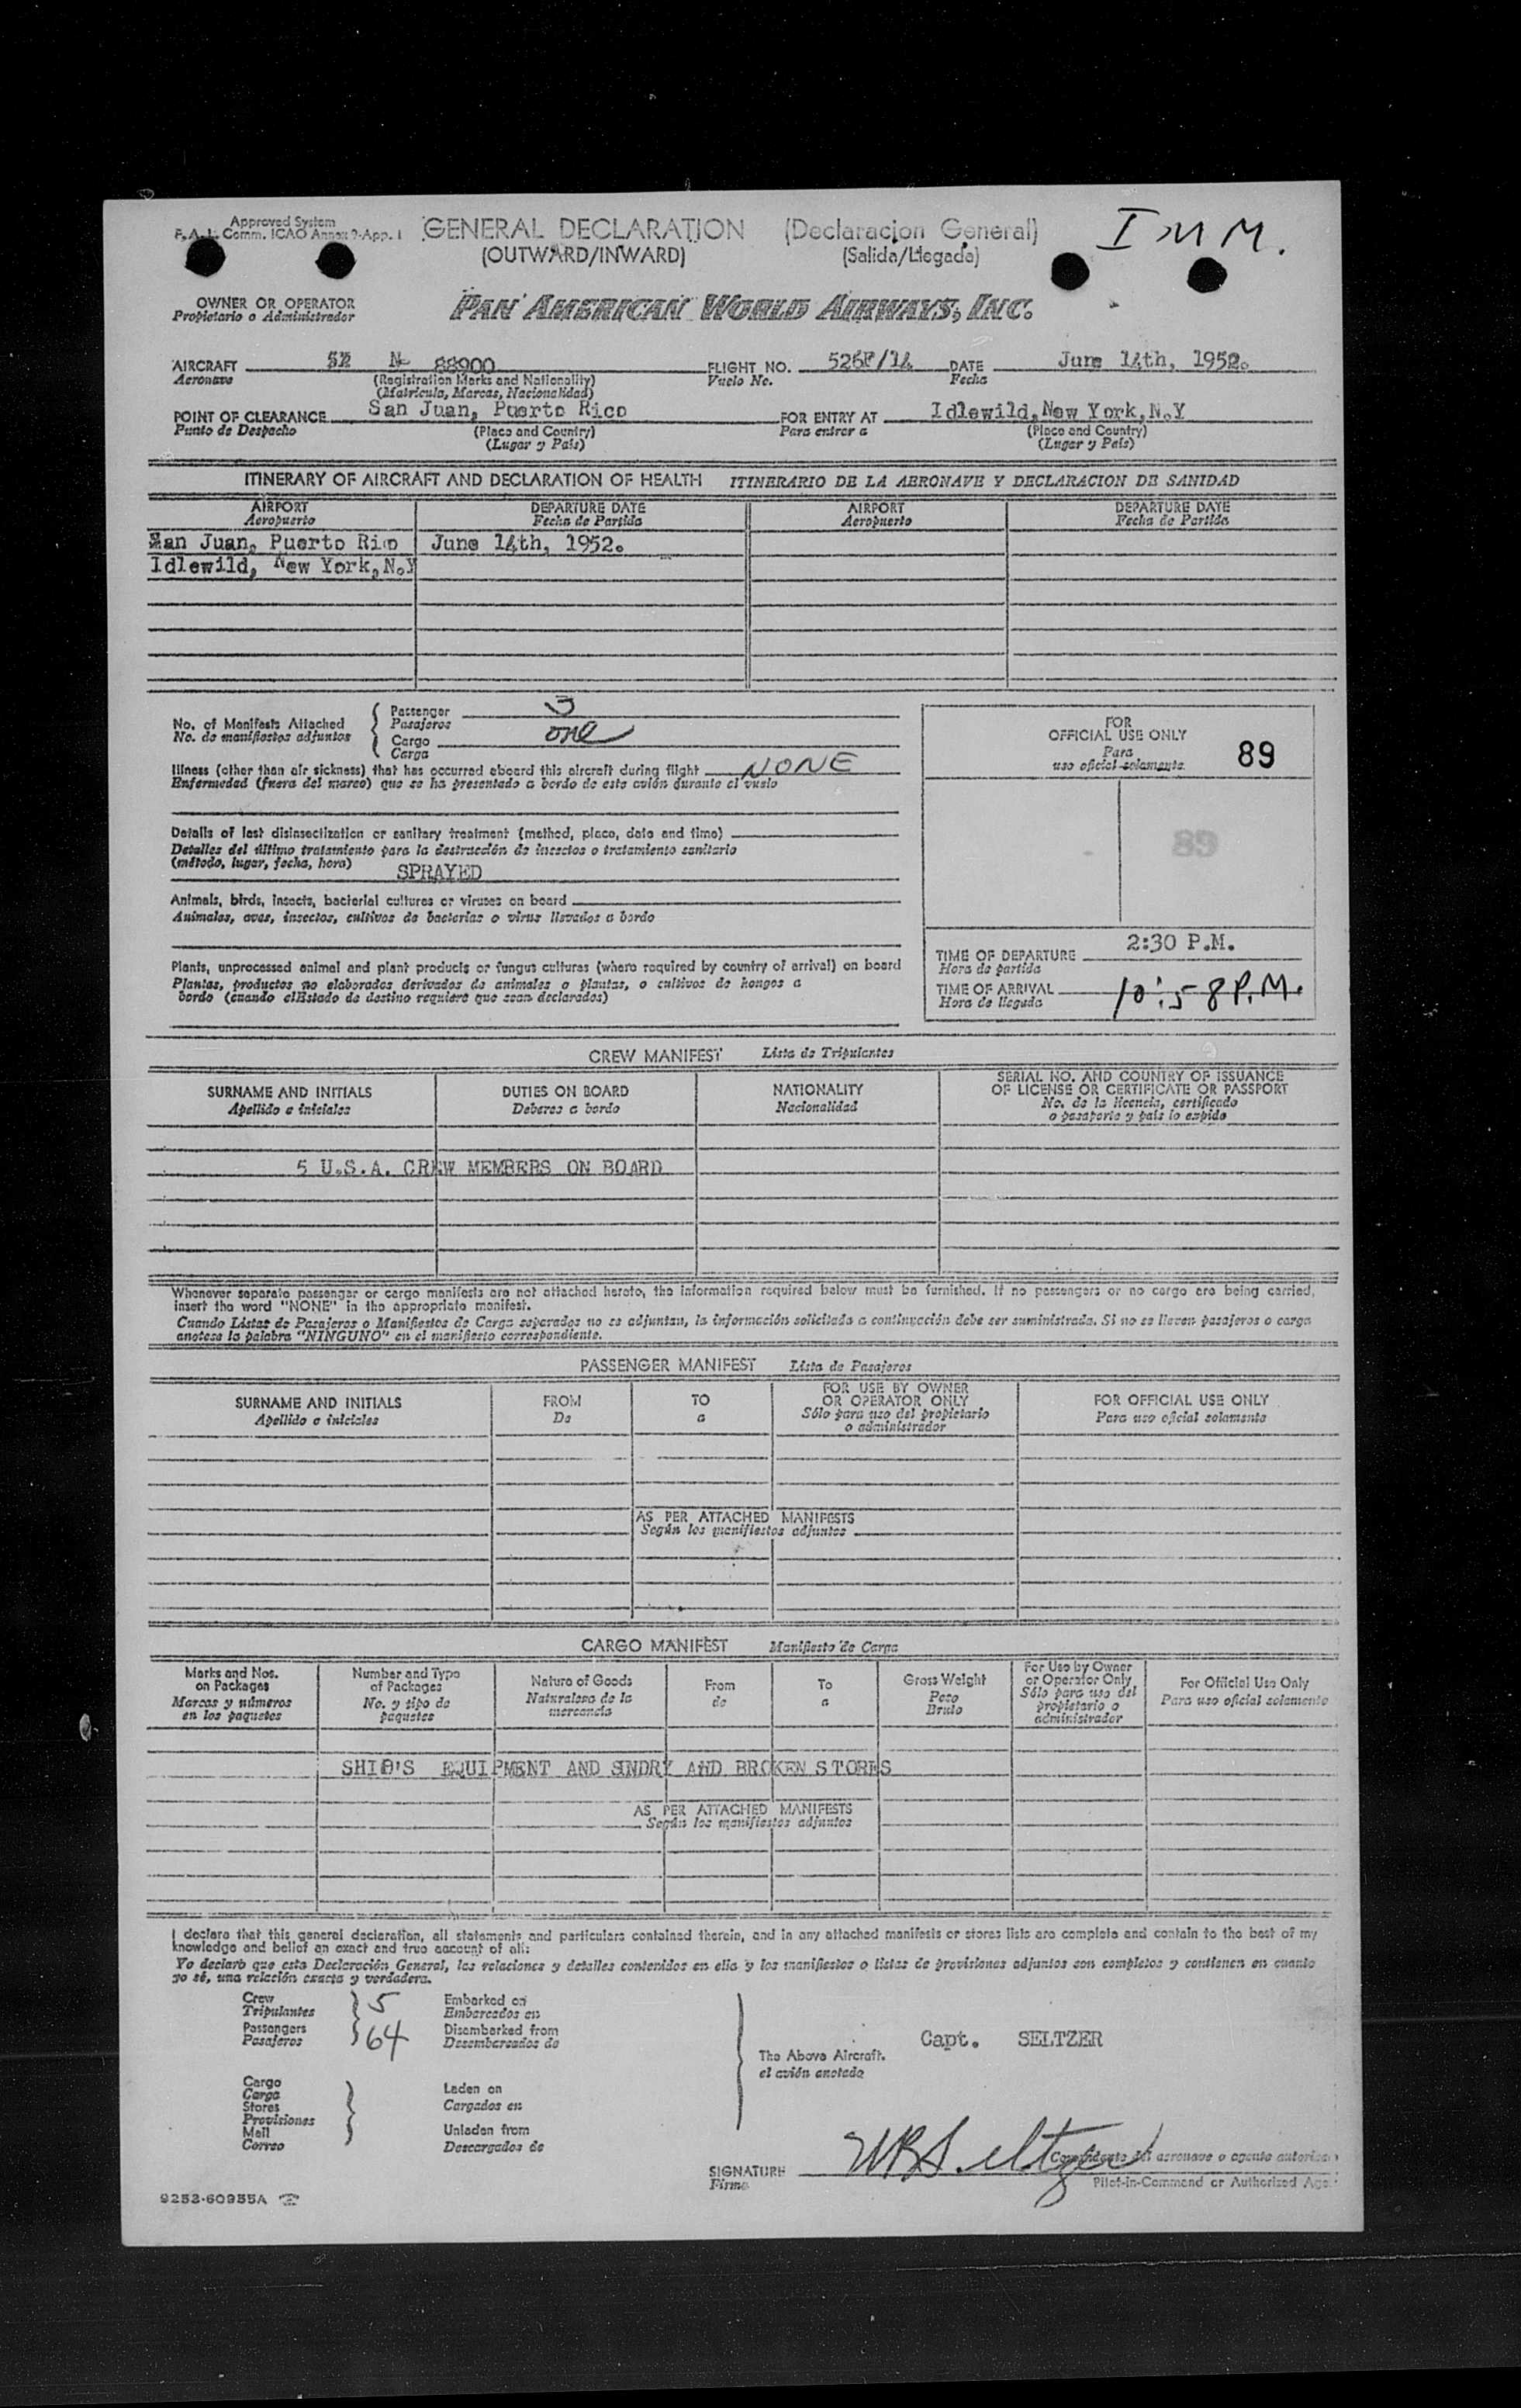 Approved System
F.A.L. Comm. ICAO Annex 9-App. 1
GENERAL DECLARATION (Declaracion General)
(OUTWARD/INWARD) (Salida/Llegada)
IMM.
OWNER OR OPERATOR
Propietario o Administrador
PAN AMERICAN WORLD AIRWAYS, INC.
AIRCRAFT N 88900 FLIGHT NO. 526F/14 DATE June 14th, 1952.
Aeronave (Registration Marks and Nationality) Vuelo No. Fecha
(Matricula, Marcas, Nacionalidad)
POINT OF CLEARANCE San Juan, Puerto Rico FOR ENTRY AT Idlewild,New York,N.Y
Punto de Despacho (Place and Country) Para entrar a (Place and Country)
(Lugar y País) (Lugar y País)
ITINERARY OF AIRCRAFT AND DECLARATION OF HEALTH ITINERARIO DE LA AERONAVE Y DECLARACION DE SANIDAD
AIRPORT DEPARTURE DATE AIRPORT DEPARTURE DATE
Aeropuerto Fecha de Partida Aeropuerto Fecha de Partida
San Juan, Puerto Rico June 14th, 1952.
Idlewild, New York,N.Y
No. of Manifests Attached Passenger 3
No. de manifiestos adjuntos Pasajeros
Cargo one
Carga
Illness (other than air sickness) that has occurred aboard this aircraft during flight NONE
Enfermedad (fuera del mareo) que se ha presentado a bordo de este avión durante el vuelo
Details of last disinsectization or sanitary treatment (method, place, date and time)
Detalles del último tratamiento para la destrucción de insectos o tratamiento sanitario
(método, lugar, fecha, hora) SPRAYED
Animals, birds, insects, bacterial cultures or viruses on board
Animales, aves, insectos, cultivos de bacterias o virus llevados a bordo
Plants, unprocessed animal and plant products or fungus cultures (where required by country of arrival) on board
Plantas, productos no elaborados derivados de animales o plantas, o cultivos de hongos a
bordo (cuando elEstado de destino requiere que sean declarados)
FOR
OFFICIAL USE ONLY
Para
uso oficial solamente
89
89
TIME OF DEPARTURE 2:30 P.M.
Hora de partida
TIME OF ARRIVAL 10:58 P.M.
Hora de llegada
CREW MANIFEST Lista de Tripulantes
SURNAME AND INITIALS DUTIES ON BOARD NATIONALITY SERIAL NO. AND COUNTRY OF ISSUANCE
OF LICENSE OR CERTIFICATE OR PASSPORT
Apellido e iniciales Deberes a bordo Nacionalidad No. de la licencia, certificado
o pasaporte y país lo expide
5 U.S.A. CREW MEMBERS ON BOARD
Whenever separate passenger or cargo manifests are not attached hereto, the information required below must be furnished. If no passengers or no cargo are being carried,
insert the word "NONE" in the appropriate manifest.
Cuando Listas de Pasajeros o Manifiestos de Carga separados no se adjuntan, la información solicitada a continuación debe ser suministrada. Si no se llevan pasajeros o carga
anotese la palabra "NINGUNO" en el manifiesto correspondiente.
PASSENGER MANIFEST Lista de Pasajeros
SURNAME AND INITIALS FROM TO FOR USE BY OWNER
OR OPERATOR ONLY FOR OFFICIAL USE ONLY
Apellido e iniciales De a Sólo para uso del propietario
o administrador Para uso oficial solamente
AS PER ATTACHED MANIFESTS
Según los manifiestos adjuntos
CARGO MANIFEST Manifiesto de Carga
Marks and Nos.
on Packages
Marcas y números
en los paquetes
Number and Type
of Packages
No. y tipo de
paquetes
Nature of Goods
Naturaleza de la
mercancía
From
de
To
a
Gross Weight
Peso
Bruto
For Use by Owner
or Operator Only
Sólo para uso del
propietario o
administrador
For Official Use Only
Para uso oficial solamente
SHIP'S EQUIPMENT AND SNDRY AND BROKEN STORES
AS PER ATTACHED MANIFESTS
Según los manifiestos adjuntos
I declare that this general declaration, all statements and particulars contained therein, and in any attached manifests or stores lists are complete and contain to the best of my
knowledge and belief an exact and true account of all:
Yo declaro que esta Declaración General, las relaciones y detalles contenidos en ella y los manifiestos o listas de provisiones adjuntos son completos y contienen en cuanto
yo sé, una relación exacta y verdadera.
Crew
Tripulantes
5
Passengers
Pasajeros
64
Embarked on
Embarcados en
Disembarked from
Desembarcados de
Cargo
Carga
Stores
Provisiones
Mail
Correo
Laden on
Cargados en
Unladen from
Descargados de
The Above Aircraft.
el avión anotado
Capt. SELTZER
SIGNATURE WBSeltzer
Firma
Comandante del aeronave o agente autoriza
Pilot-in-Command or Authorized Age
9252-60955A